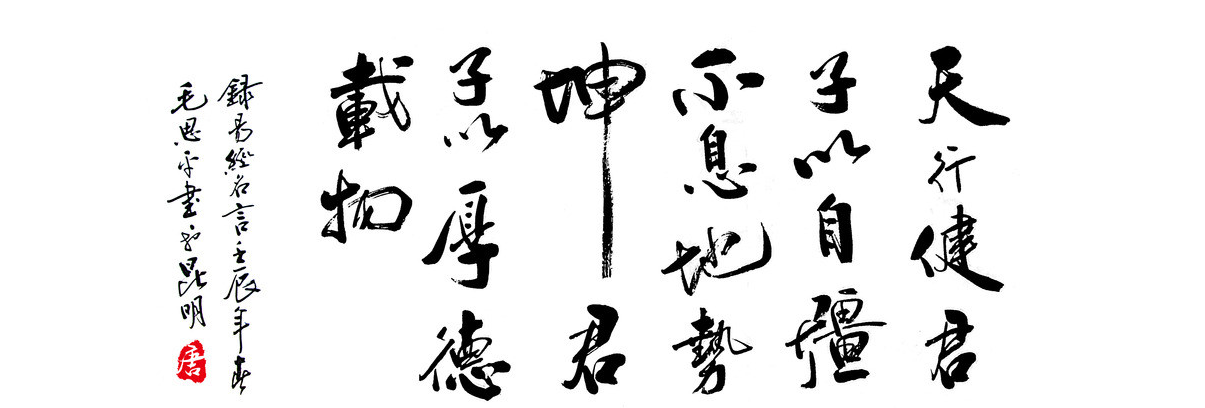 天行健君
子以自彊
不息地勢
坤君
子以厚德
載物
録易經名言壬辰年春
毛思平書於昆明
唐